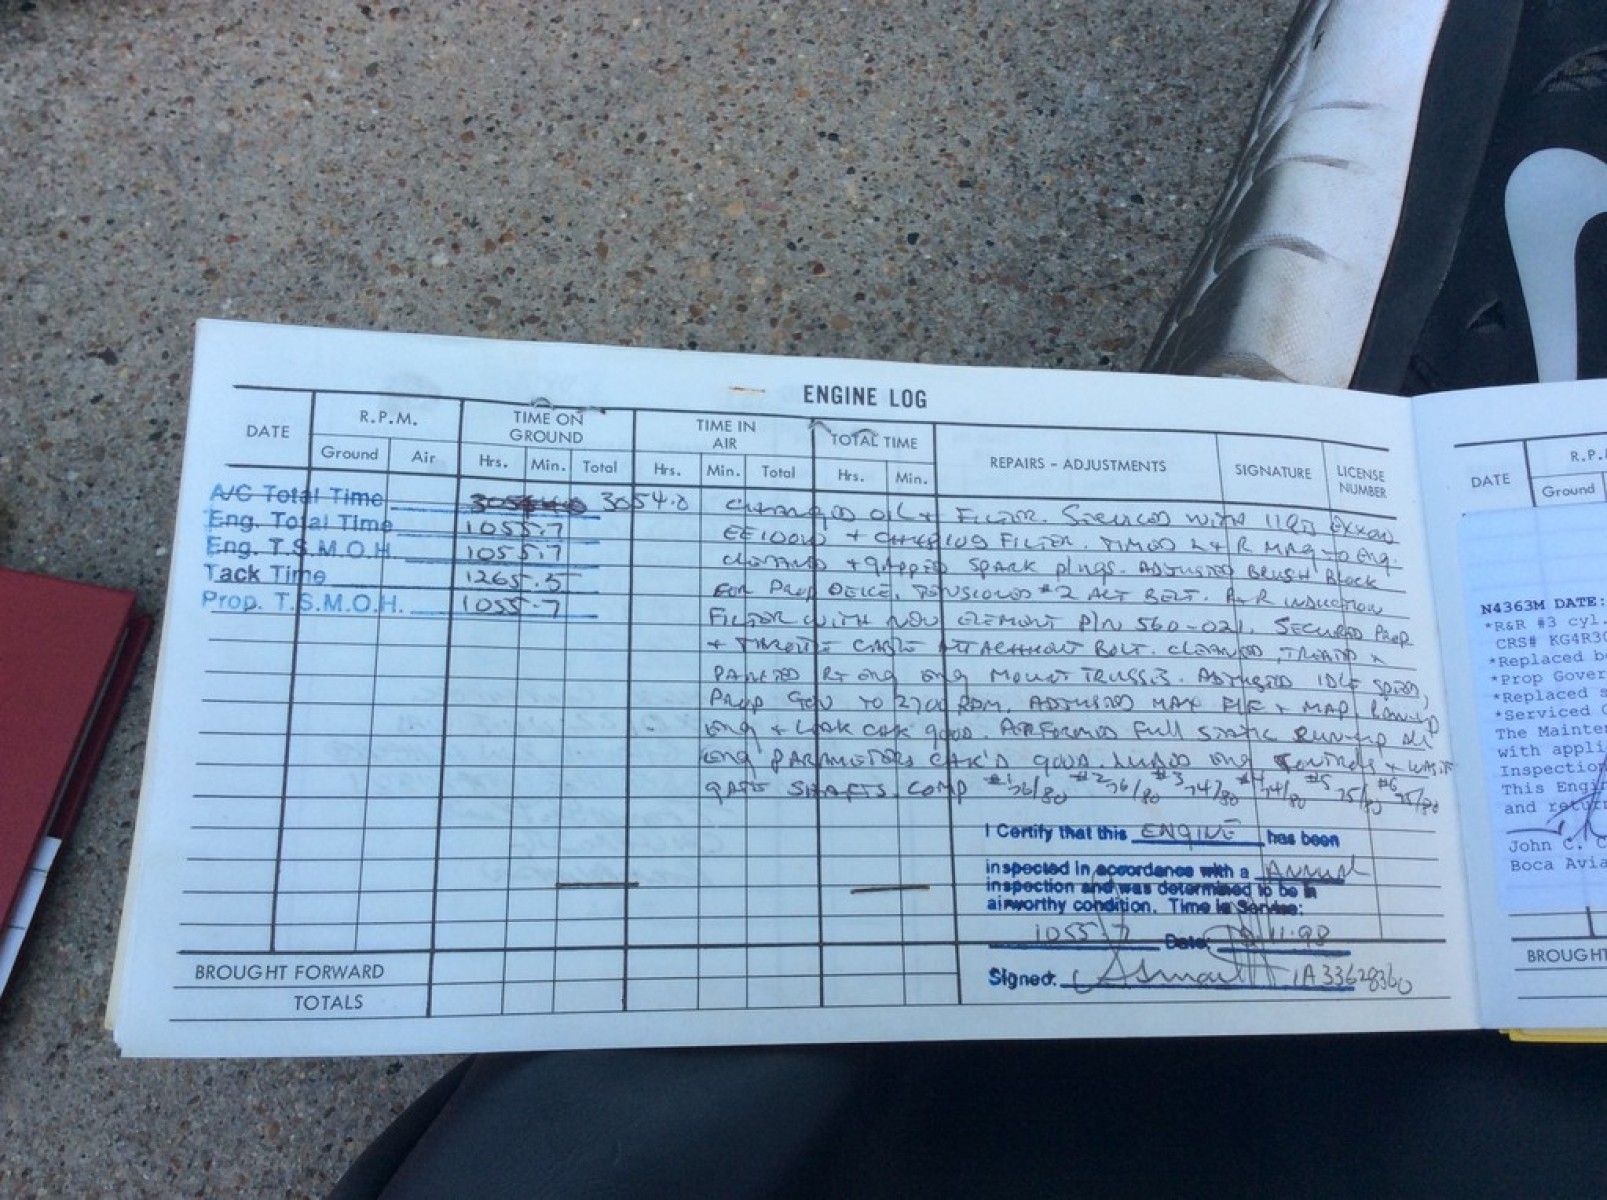 ENGINE LOG
DATE R.P.M. TIME ON GROUND TIME IN AIR TOTAL TIME REPAIRS - ADJUSTMENTS SIGNATURE LICENSE NUMBER
Ground Air Hrs. Min. Total Hrs. Min. Total Hrs. Min.
A/C Total Time 3054.0
Eng. Total Time 1055.7
Eng. T.S.M.O.H. 1055.7
Tack Time 1265.5
Prop. T.S.M.O.H. 1055.7
CHANGED OIL + FILTER. SERVICED WITH 11QTS EXXON
EE100W + FILTER. TIMED L + R MAG TO Eng.
CLEANED + GAPPED SPARK plugs. ADJUSTED BRUSH Block
FOR PROP DEICE. TENSIONED #2 ALT BELT. R+R INDUCTION
FILTER WITH NEW ELEMENT P/N 560-021. SECURED PROP
+ THROTTLE CABLE ATTACHMENT BOLT. CLEANED, TREATED +
PAINTED RT ENG ENG MOUNT TRUSSES. ADJUSTED IDLE SPEED,
PROP GOV TO 2700 RPM. ADJUSTED MAX F/F + MAP,
ENG + LEAK good. PERFORMED FULL STATIC RUN-UP ALL
ENG PARAMETERS good. LUBED ENG CONTROLS + WASTE
GATE SHAFTS. COMP #1 76/80 #2 76/80 #3 74/80 #4 74/80 #5 75/80 #6 75/80
I Certify that this ENGINE has been
inspected in accordance with a ANNUAL
inspection and was determined to be in
airworthy condition. Time in Service:
1055.7 Date 11-98
Signed. IA 33628360
BROUGHT FORWARD
TOTALS
DATE R.P.
Ground
N4363M DATE:
*R&R #3 cyl.
CRS# KG4R30
*Replaced b
*Prop Gover
*Replaced s
*Serviced
The Mainte
with appli
Inspection
This Engi
and retur
John C.
Boca Avia
BROUGHT